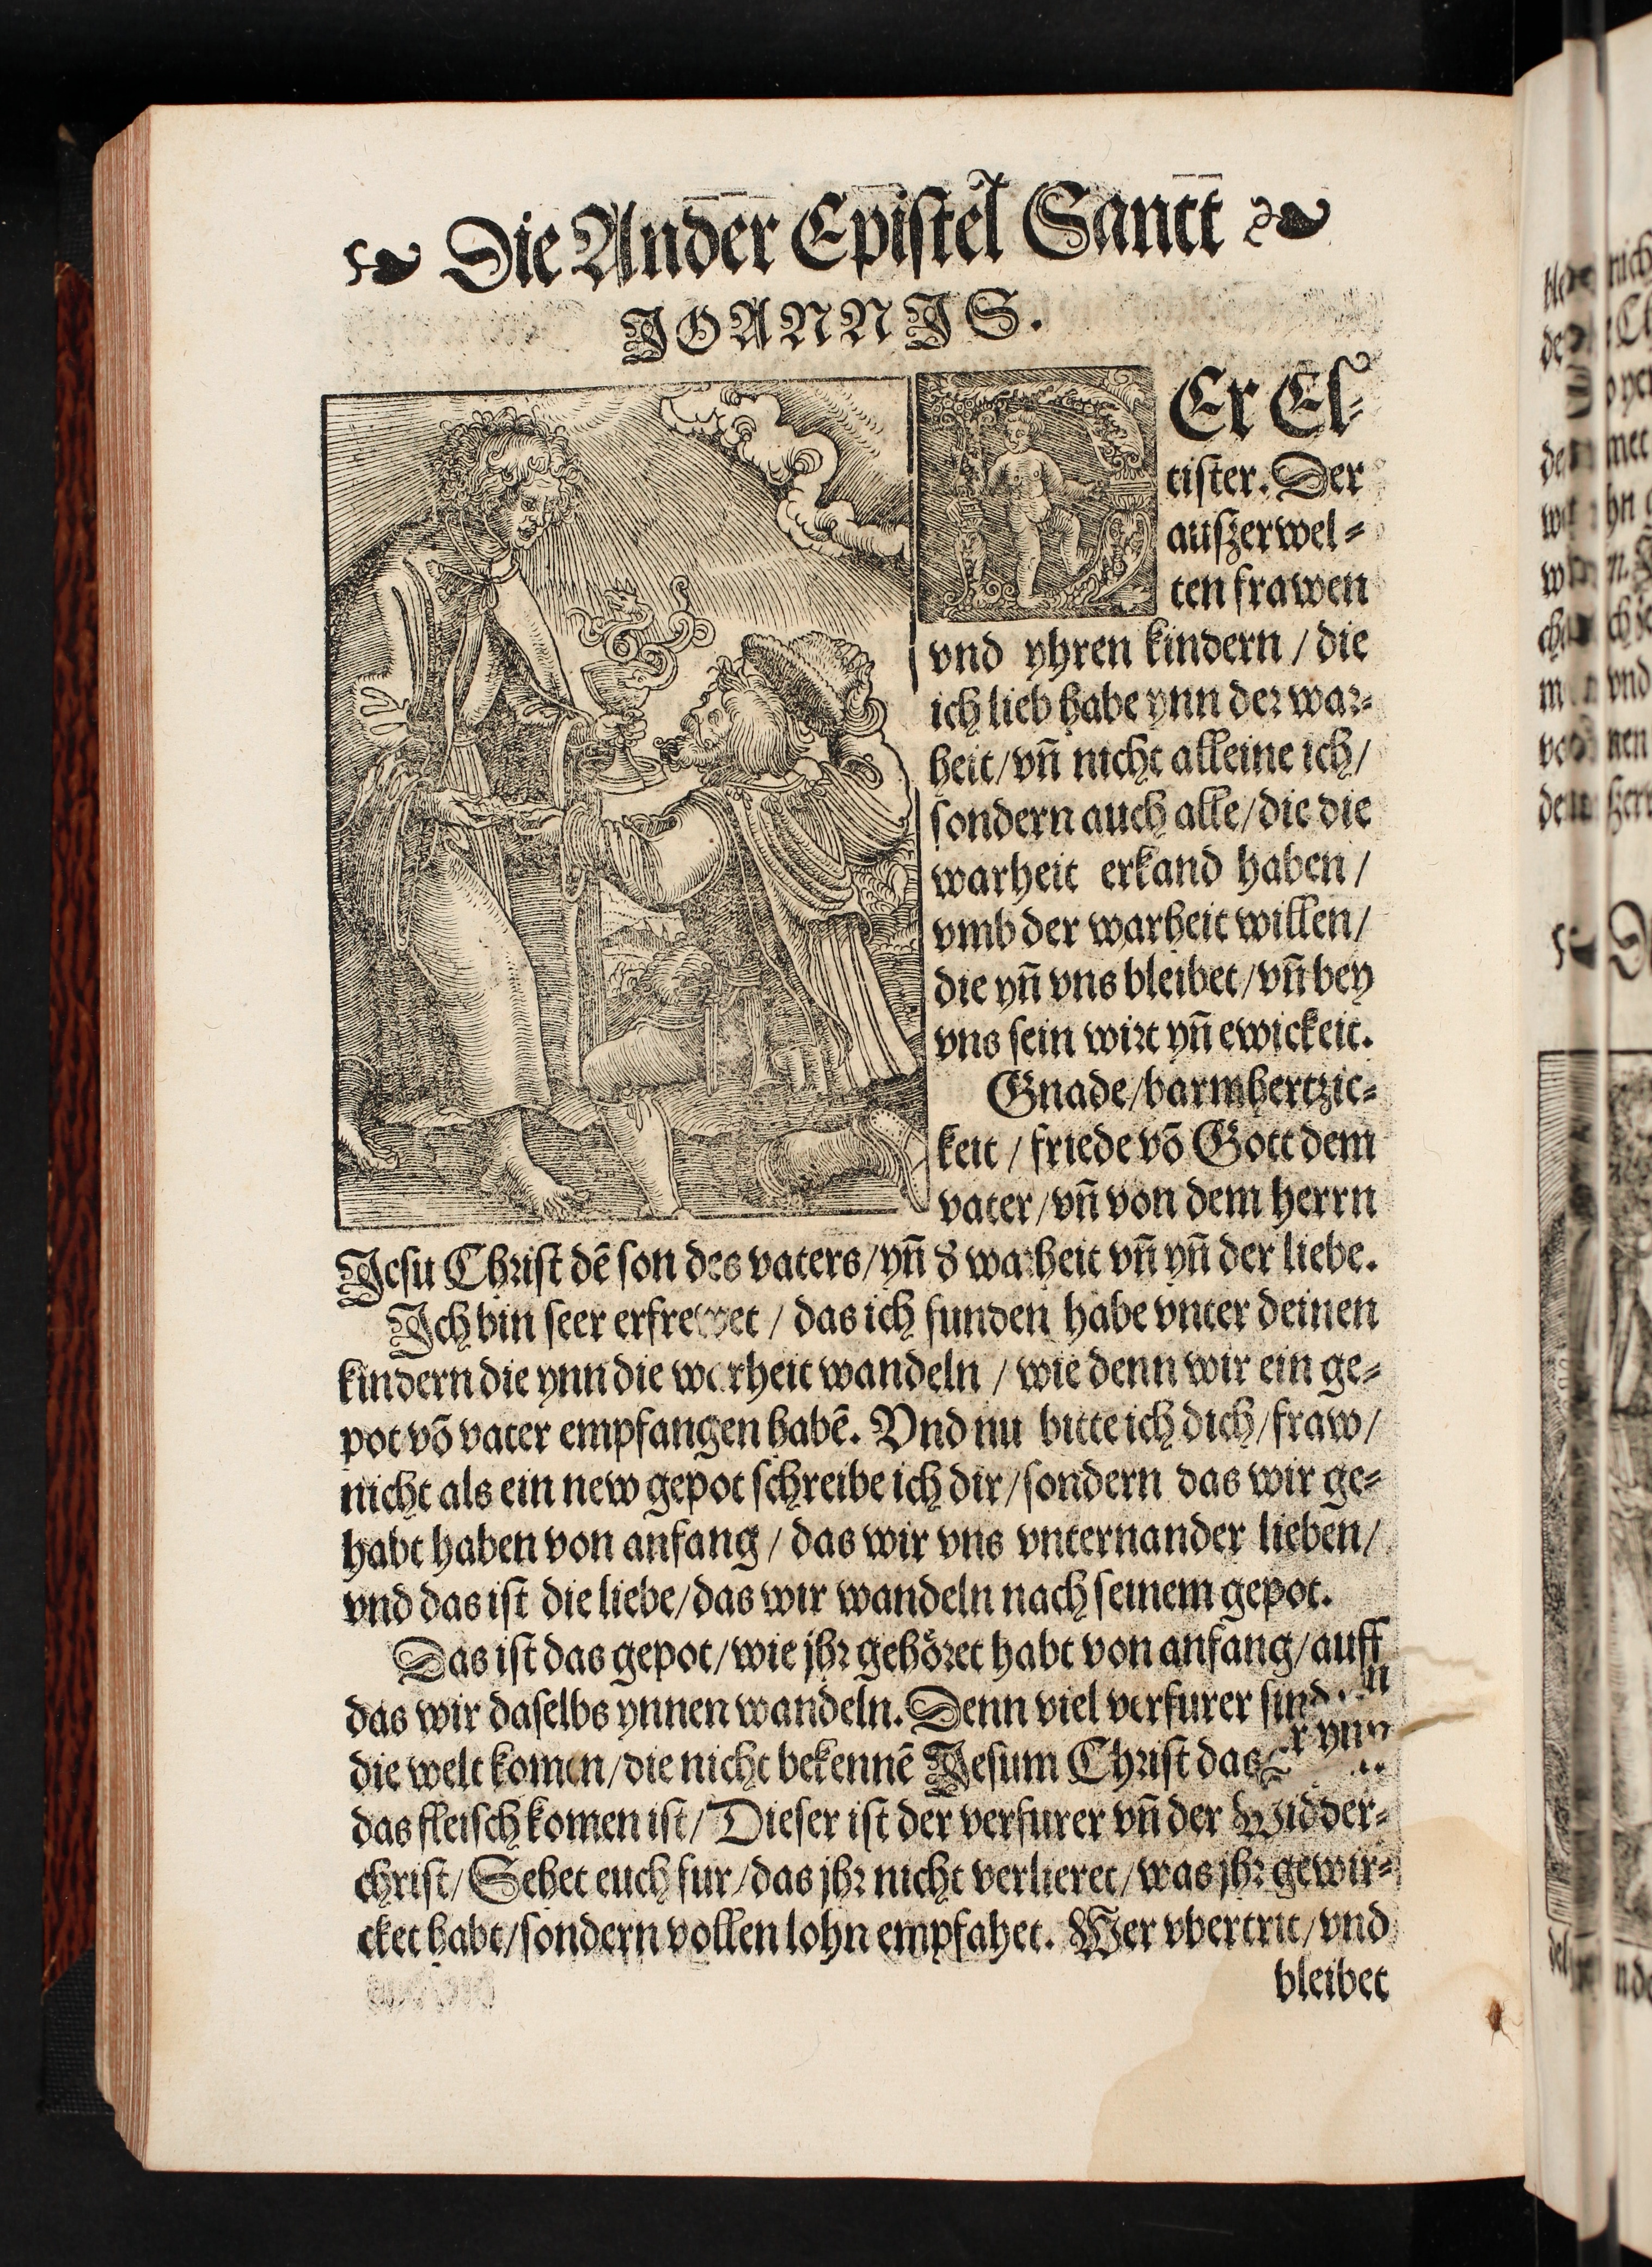 Die Ander Epistel Sanct
JOANNJS.
DEr El⸗
tister. Der
auszerwel⸗
ten frawen
vnd yhren kindern / die
ich lieb habe ynn der war⸗
heit/vn̄ nicht alleine ich/
sondern auch alle/die die
warheit erkand haben/
vmb der warheit willen/
die yn̄ vns bleibet/vn̄ bey
vns sein wirt yn̄ ewickeit.
Gnade/barmhertzic⸗
keit / friede vō Gott dem
vater/vn̄ von dem herrn
Jesu Christ dē son des vaters/yn̄ d' warheit vn̄ yn̄ der liebe.
Jch bin seer erfrewet / das ich funden habe vnter deinen
kindern die ynn die warheit wandeln / wie denn wir ein ge⸗
pot vō vater empfangen habē. Vnd nu bitte ich dich/fraw/
nicht als ein new gepot schreibe ich dir/sondern das wir ge⸗
habt haben von anfang/ das wir vns vnternander lieben/
vnd das ist die liebe/das wir wandeln nach seinem gepot.
Das ist das gepot/wie jhr gehöret habt von anfang/auff
das wir daselbs ynnen wandeln. Denn viel verfurer sind
die welt komen/die nicht bekennē Jesum Christ das er ynn
das fleisch komen ist/ Dieser ist der verfurer vn̄ der Widder⸗
christ/ Sehet euch fur/das jhr nicht verlieret/was jhr gewir⸗
cket habt/sondern vollen lohn empfahet. Wer vbertrit/vnd
bleibet